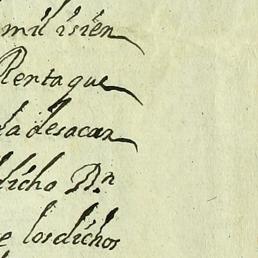 mil isien
Renta que
da desacar
dicho Rn
e los dichos